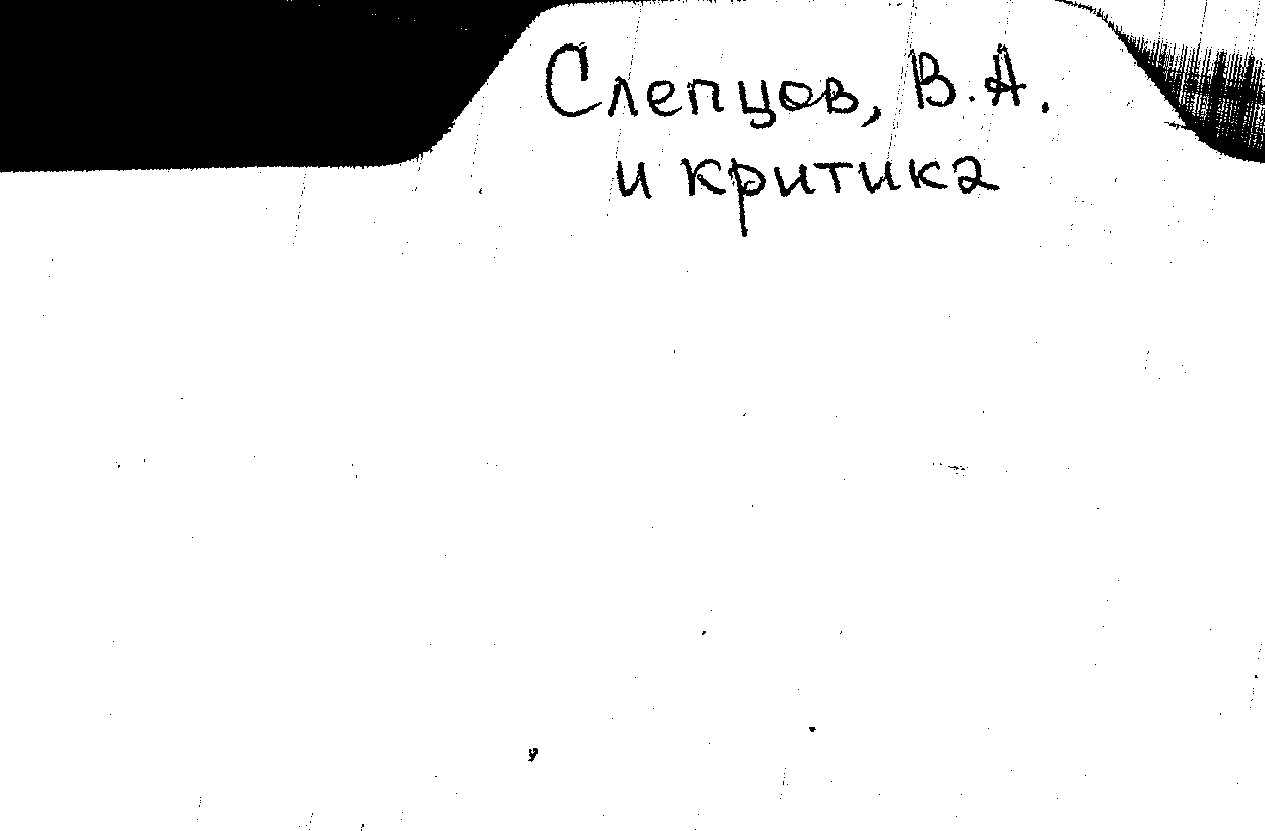 Слепцов, В.А.
и критика